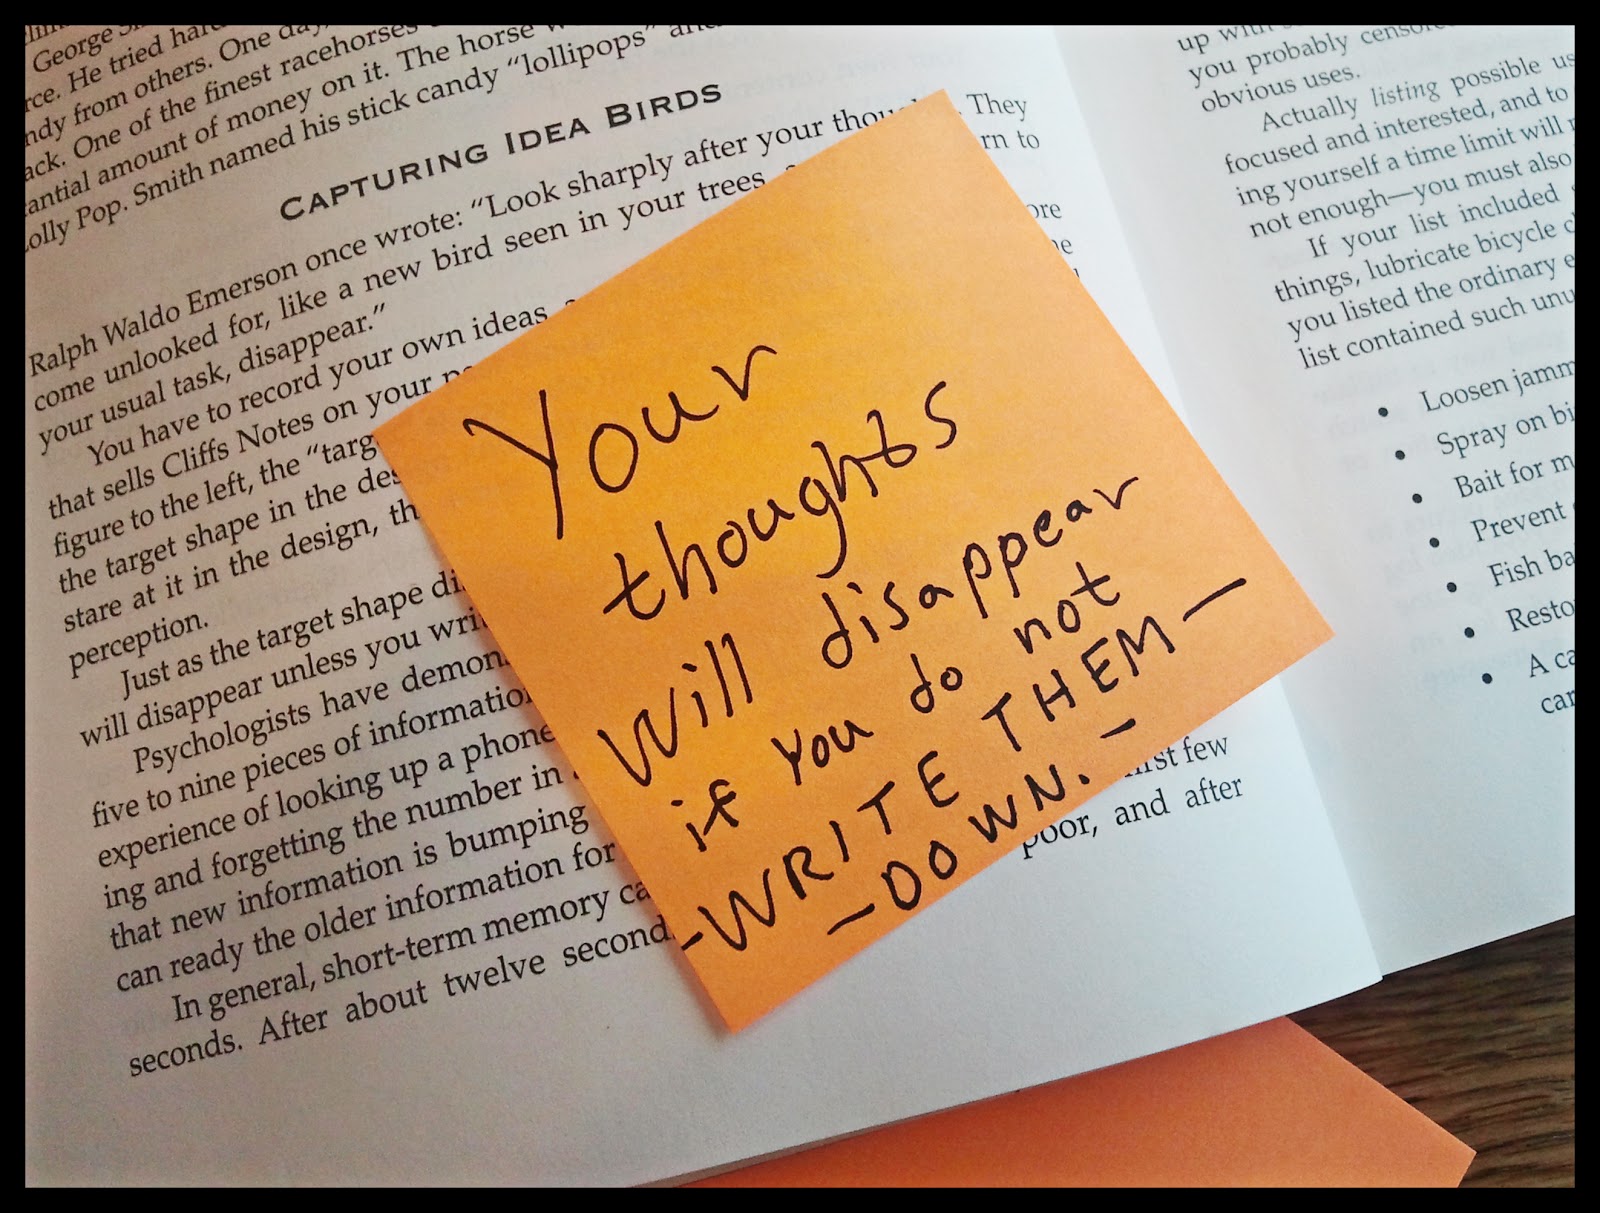 George S
rce. He tried hard
ndy from others. One day,
ack. One of the finest racehorses
antial amount of money on it. The horse w
olly Pop. Smith named his stick candy “lollipops”
CAPTURING IDEA BIRDS
Ralph Waldo Emerson once wrote: “Look sharply after your thoughts. They
come unlooked for, like a new bird seen in your trees,
rn to
your usual task, disappear.”
ore
You have to record your own ideas
that sells Cliffs Notes on your
figure to the left, the “targ
the target shape in the des
stare at it in the design, th
perception.
Just as the target shape di
will disappear unless you writ
Psychologists have demon
five to nine pieces of information
experience of looking up a phone
ing and forgetting the number in
that new information is bumping
can ready the older information for
In general, short-term memory ca
first few
seconds. After about twelve second
poor, and after
Your
thoughts
will disappear
if you do not
-WRITE THEM-
-DOWN.-
up with
you probably censore
obvious uses.
Actually listing possible us
focused and interested, and to
ing yourself a time limit will
not enough—you must also
If your list included
things, lubricate bicycle c
you listed the ordinary e
list contained such unu
• Loosen jamm
• Spray on bi
• Bait for m
• Prevent
• Fish ba
• Resto
• A ca
car